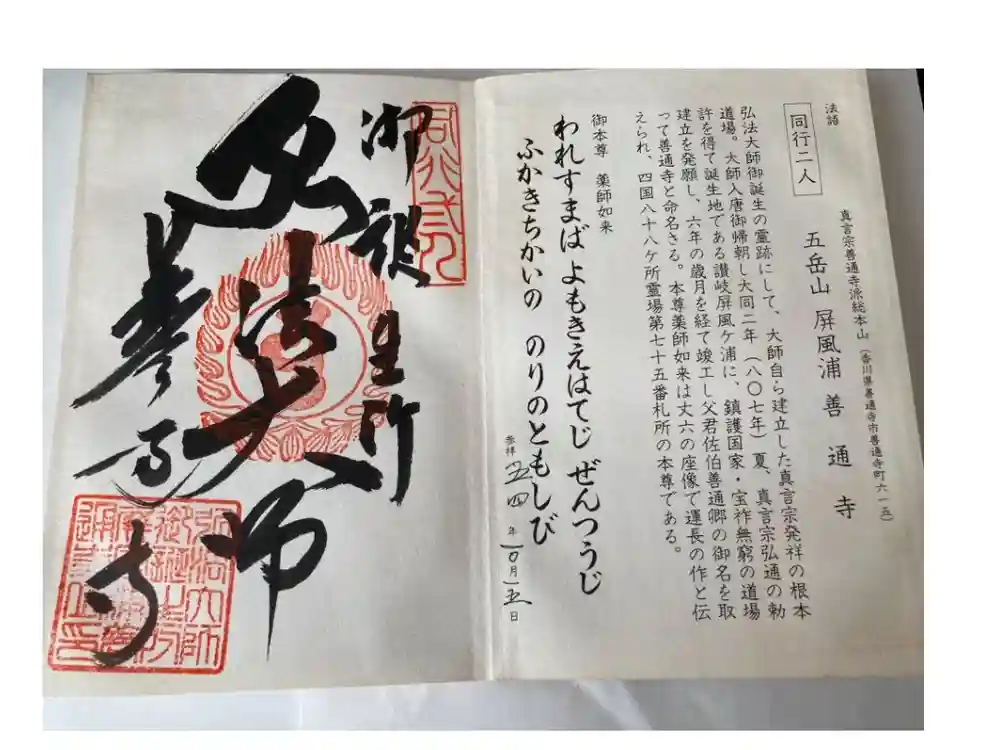 法話
真言宗善通寺派総本山 (香川県善通寺市善通寺町六一五)
同行二人
五岳山 屏風浦 善通寺
弘法大師御誕生の霊跡にして、大師自ら建立した真言宗発祥の根本
道場。大師入唐御帰朝し大同二年(八〇七年)夏、真言宗弘通の勅
許を得て誕生地である讃岐屏風ケ浦に、鎮護国家・宝祚無窮の道場
建立を発願し、六年の歳月を経て竣工し父君佐伯善通卿の御名を取
って善通寺と命名さる。本尊薬師如来は丈六の座像で運長の作と伝
えられ、四国八十八ケ所霊場第七十五番札所の本尊である。
御本尊 薬師如来
われすまば よもきえはてじ ぜんつうじ
ふかきちかいの のりのともしび
参拝 五四年一〇月一五日
御誕生所
弘法大師
善通寺